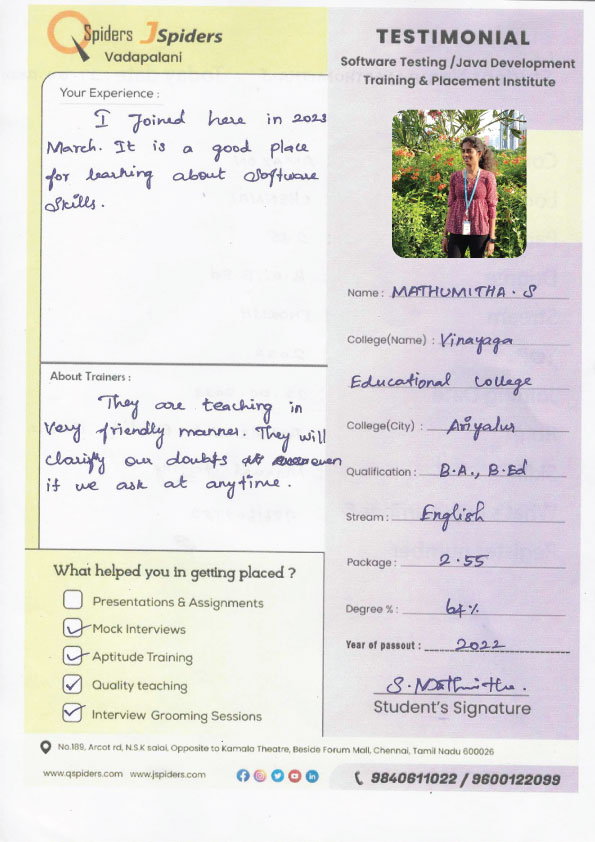 QSpiders JSpiders
Vadapalani
Your Experience :
I Joined here in 2023
March. It is a good place
for learning about Software
Skills.
About Trainers :
They are teaching in
very friendly manner. They will
clarify our doubts even
if we ask at anytime.
What helped you in getting placed ?
Presentations & Assignments
Mock Interviews
Aptitude Training
Quality teaching
Interview Grooming Sessions
TESTIMONIAL
Software Testing /Java Development
Training & Placement Institute
Name : MATHUMITHA. S
College(Name) : Vinayaga
Educational College
College(City) : Ariyalur
Qualification : B.A., B.Ed
Stream : English
Package : 2.55
Degree % : 64%
Year of passout : 2022
S. Mathumitha.
Student's Signature
No.189, Arcot rd, N.S.K salai, Opposite to Kamala Theatre, Beside Forum Mall, Chennai, Tamil Nadu 600026
www.qspiders.com www.jspiders.com
9840611022 / 9600122099